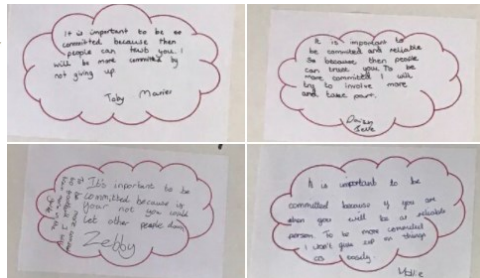 It is important to be so
committed because then
people can trust you. I
will be more committed by
not giving up
Toby
It is important to
be commited and reliable
So because then people
can trust you. To be
more committed I will
try to involve more
and take part.
It's inportant to be
committed because is
your not you would
let other people down
Zebby
It is important to be
committed because if you are
then you will be a reliable
person. To be more commited
I won't give up on things
as easily.